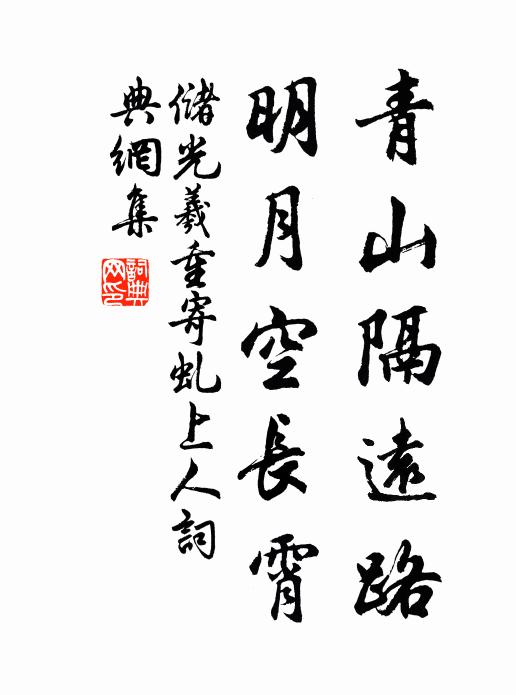 青山隔遠路
明月空長霄
儲光羲重寄虬上人詞
典網集
詞典網印